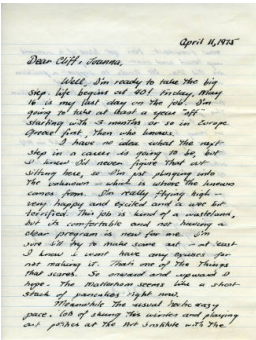 April 11, 1975
Dear Cliff & Joanna,
Well, I'm ready to take the big
step. Life begins at 40! Friday, May
16 is my last day on the job. I'm
going to take at least a year "off"
starting with 4 months or so in Europe
Greece first, then who knows.
I have no idea what the next
step in a career is going to be, but
I knew I'd never figure that out
sitting here, so I'm just plunging into
the unknown - which is where the known
comes from. I'm really flying high -
very happy and excited and a wee bit
terrified. This job is kind of a wasteland,
but it's comfortable and not having a
clear program is new for me. I'm
sure I'll try to make some art - at least
I know I won't have any excuses for
not making it. That's one of the things
that scares. So onward and upward I
hope. The Matterhorn seems like a short
stack of pancakes right now.
Meanwhile the usual hectic easy
pace. Lots of skiing this winter and playing
out at the Art Institute with the